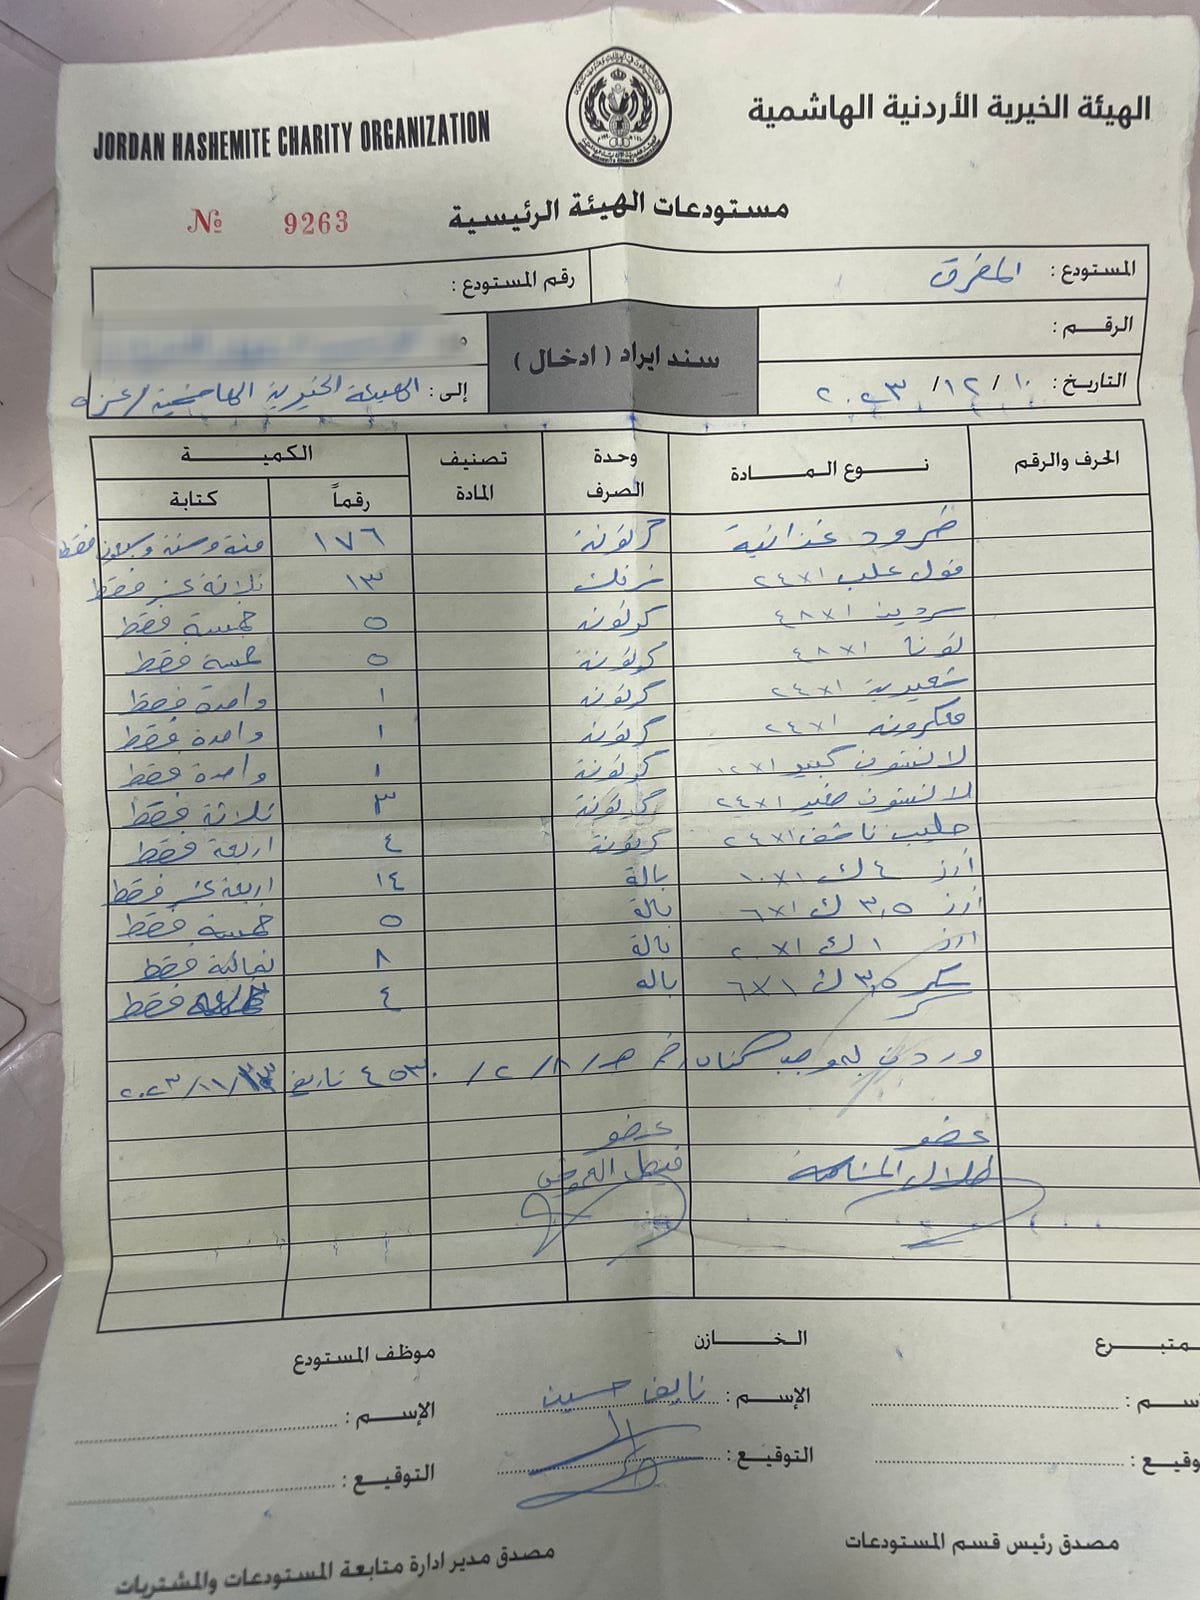 الهيئة الخيرية الأردنية الهاشمية
JORDAN HASHEMITE CHARITY ORGANIZATION
مستودعات الهيئة الرئيسية
№ 9263
المستودع : المفرق
رقم المستودع :
الرقم :
سند ايراد ( ادخال )
التاريخ : ١٠ / ١٢ / ٢٠٢٣
إلى : الهيئة الخيرية الهاشمية / غزه
الحرف والرقم نوع المادة وحدة الصرف تصنيف المادة الكمية
رقماً كتابة
طرود غذائية كرتونة ١٧٦ مئة وستة وسبعون فقط
فول علب ٢٤x١ ١٣ ثلاثة عشر فقط
سردين ٤٨x١ كرتونة ٥ خمسة فقط
تونا ٤٨x١ كرتونة ٥ خمسة فقط
شعيرية ٢٤x١ كرتونة ١ واحدة فقط
معكرونه ٢٤x١ كرتونة ١ واحدة فقط
لانشون كبير ١٢x١ كرتونة ١ واحدة فقط
لانشون صغير ٢٤x١ كرتونة ٣ ثلاثة فقط
حليب ناشف ٢٤x١ كرتونة ٤ اربعة فقط
أرز ٤ ك ١٠x١ بالة ١٤ اربعة عشر فقط
أرز ٣,٥ ك ٦x١ بالة ٥ خمسة فقط
ارز ١ ك ٢٠x١ بالة ٨ ثمانية فقط
سكر ٣,٥ ك ٦x١ باله ٤ فقط
وردت بموجب كتاب / ٨ / ٢ / ٤٥٣٠ تاريخ ١٣/١١/٢٠٢٣
عضو عضو
طلال فيصل
متبرع الخازن موظف المستودع
الإسم : نايف حسين الإسم :
التوقيع : التوقيع :
مصدق رئيس قسم المستودعات
مصدق مدير ادارة متابعة المستودعات والمشتريات